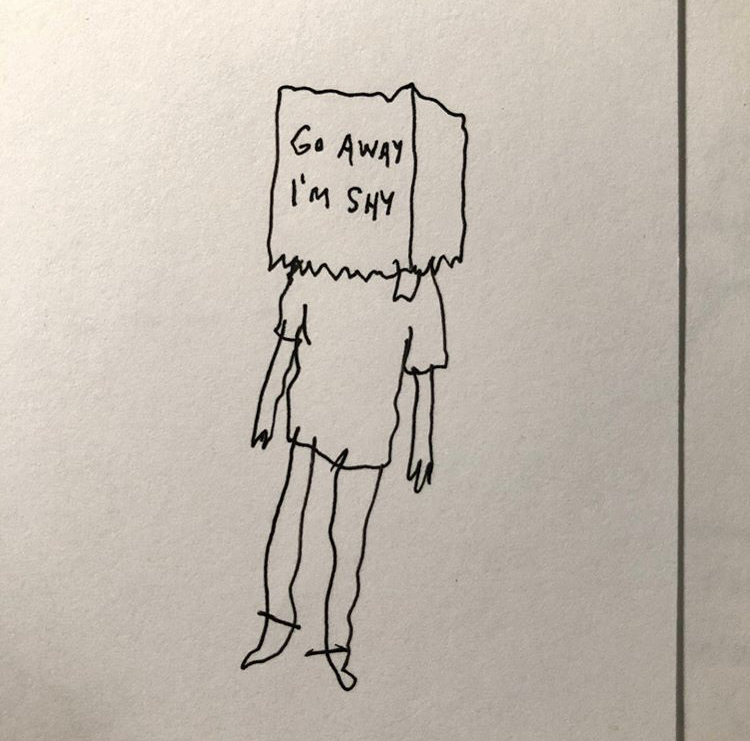 Go AWAY
I'M SHY